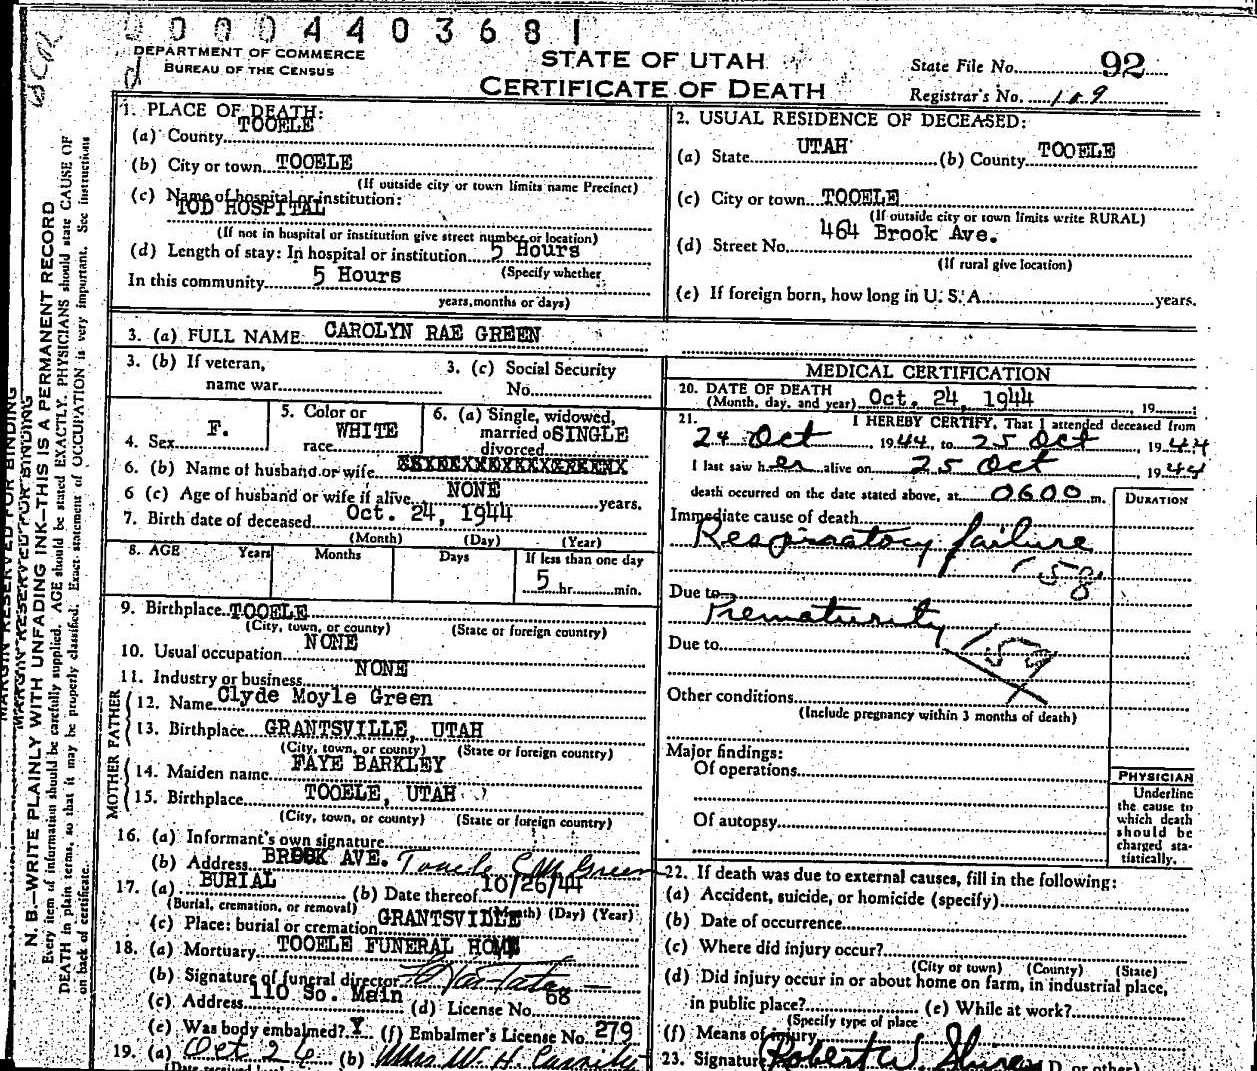 0004403681
DEPARTMENT OF COMMERCE
BUREAU OF THE CENSUS
STATE OF UTAH
CERTIFICATE OF DEATH
State File No. 92
Registrar's No. 109
MARGIN RESERVED FOR BINDING
N. B.—WRITE PLAINLY WITH UNFADING INK—THIS IS A PERMANENT RECORD
Every item of information should be carefully supplied. AGE should be stated EXACTLY. PHYSICIANS should state CAUSE OF
DEATH in plain terms, so that it may be properly classified. Exact statement of OCCUPATION is very important. See instructions
on back of certificate.
1. PLACE OF DEATH:
(a) County TOOELE
(b) City or town TOOELE
(If outside city or town limits name Precinct)
(c) Name of hospital or institution:
TOD HOSPITAL
(If not in hospital or institution give street number or location)
(d) Length of stay: In hospital or institution 5 Hours
(Specify whether
In this community 5 Hours
years, months or days)
2. USUAL RESIDENCE OF DECEASED:
(a) State UTAH (b) County TOOELE
(c) City or town TOOELE
(If outside city or town limits write RURAL)
(d) Street No. 464 Brook Ave.
(If rural give location)
(e) If foreign born, how long in U. S. A. years.
3. (a) FULL NAME CAROLYN RAE GREEN
3. (b) If veteran,
name war
3. (c) Social Security
No.
4. Sex F.
5. Color or
race WHITE
6. (a) Single, widowed,
married or SINGLE
divorced
6. (b) Name of husband or wife
6 (c) Age of husband or wife if alive NONE years.
7. Birth date of deceased Oct. 24, 1944
(Month) (Day) (Year)
8. AGE Years Months Days If less than one day
5 hr. min.
9. Birthplace TOOELE
(City, town, or county) (State or foreign country)
10. Usual occupation NONE
11. Industry or business NONE
FATHER
12. Name Clyde Moyle Green
13. Birthplace GRANTSVILLE, UTAH
(City, town, or county) (State or foreign country)
MOTHER
14. Maiden name FAYE BARKLEY
15. Birthplace TOOELE, UTAH
(City, town, or county) (State or foreign country)
16. (a) Informant's own signature
(b) Address BROOK AVE. Tooele C M Green
17. (a) BURIAL (b) Date thereof 10/26/44
(Burial, cremation, or removal) (Month) (Day) (Year)
(c) Place: burial or cremation GRANTSVILLE
18. (a) Mortuary TOOELE FUNERAL HOME
(b) Signature of funeral director
(c) Address 110 So. Main (d) License No. 68
(e) Was body embalmed? Y (f) Embalmer's License No. 279
19. (a) Oct 26 (b) Mrs W. H. Cassity
MEDICAL CERTIFICATION
20. DATE OF DEATH
(Month, day, and year) Oct. 24, 1944, 19
21. I HEREBY CERTIFY, That I attended deceased from
24 Oct 1944, to 25 Oct, 1944
I last saw her alive on 25 Oct 1944
death occurred on the date stated above, at 0600 m.
DURATION
Immediate cause of death
Respiratory failure
158
Due to
Prematurity
Due to 159
Other conditions
(Include pregnancy within 3 months of death)
Major findings:
Of operations
Of autopsy
PHYSICIAN
Underline
the cause to
which death
should be
charged sta-
tistically.
22. If death was due to external causes, fill in the following:
(a) Accident, suicide, or homicide (specify)
(b) Date of occurrence
(c) Where did injury occur?
(City or town) (County) (State)
(d) Did injury occur in or about home on farm, in industrial place,
in public place? (e) While at work?
(Specify type of place
(f) Means of injury
23. Signature Robert W. D. or other)